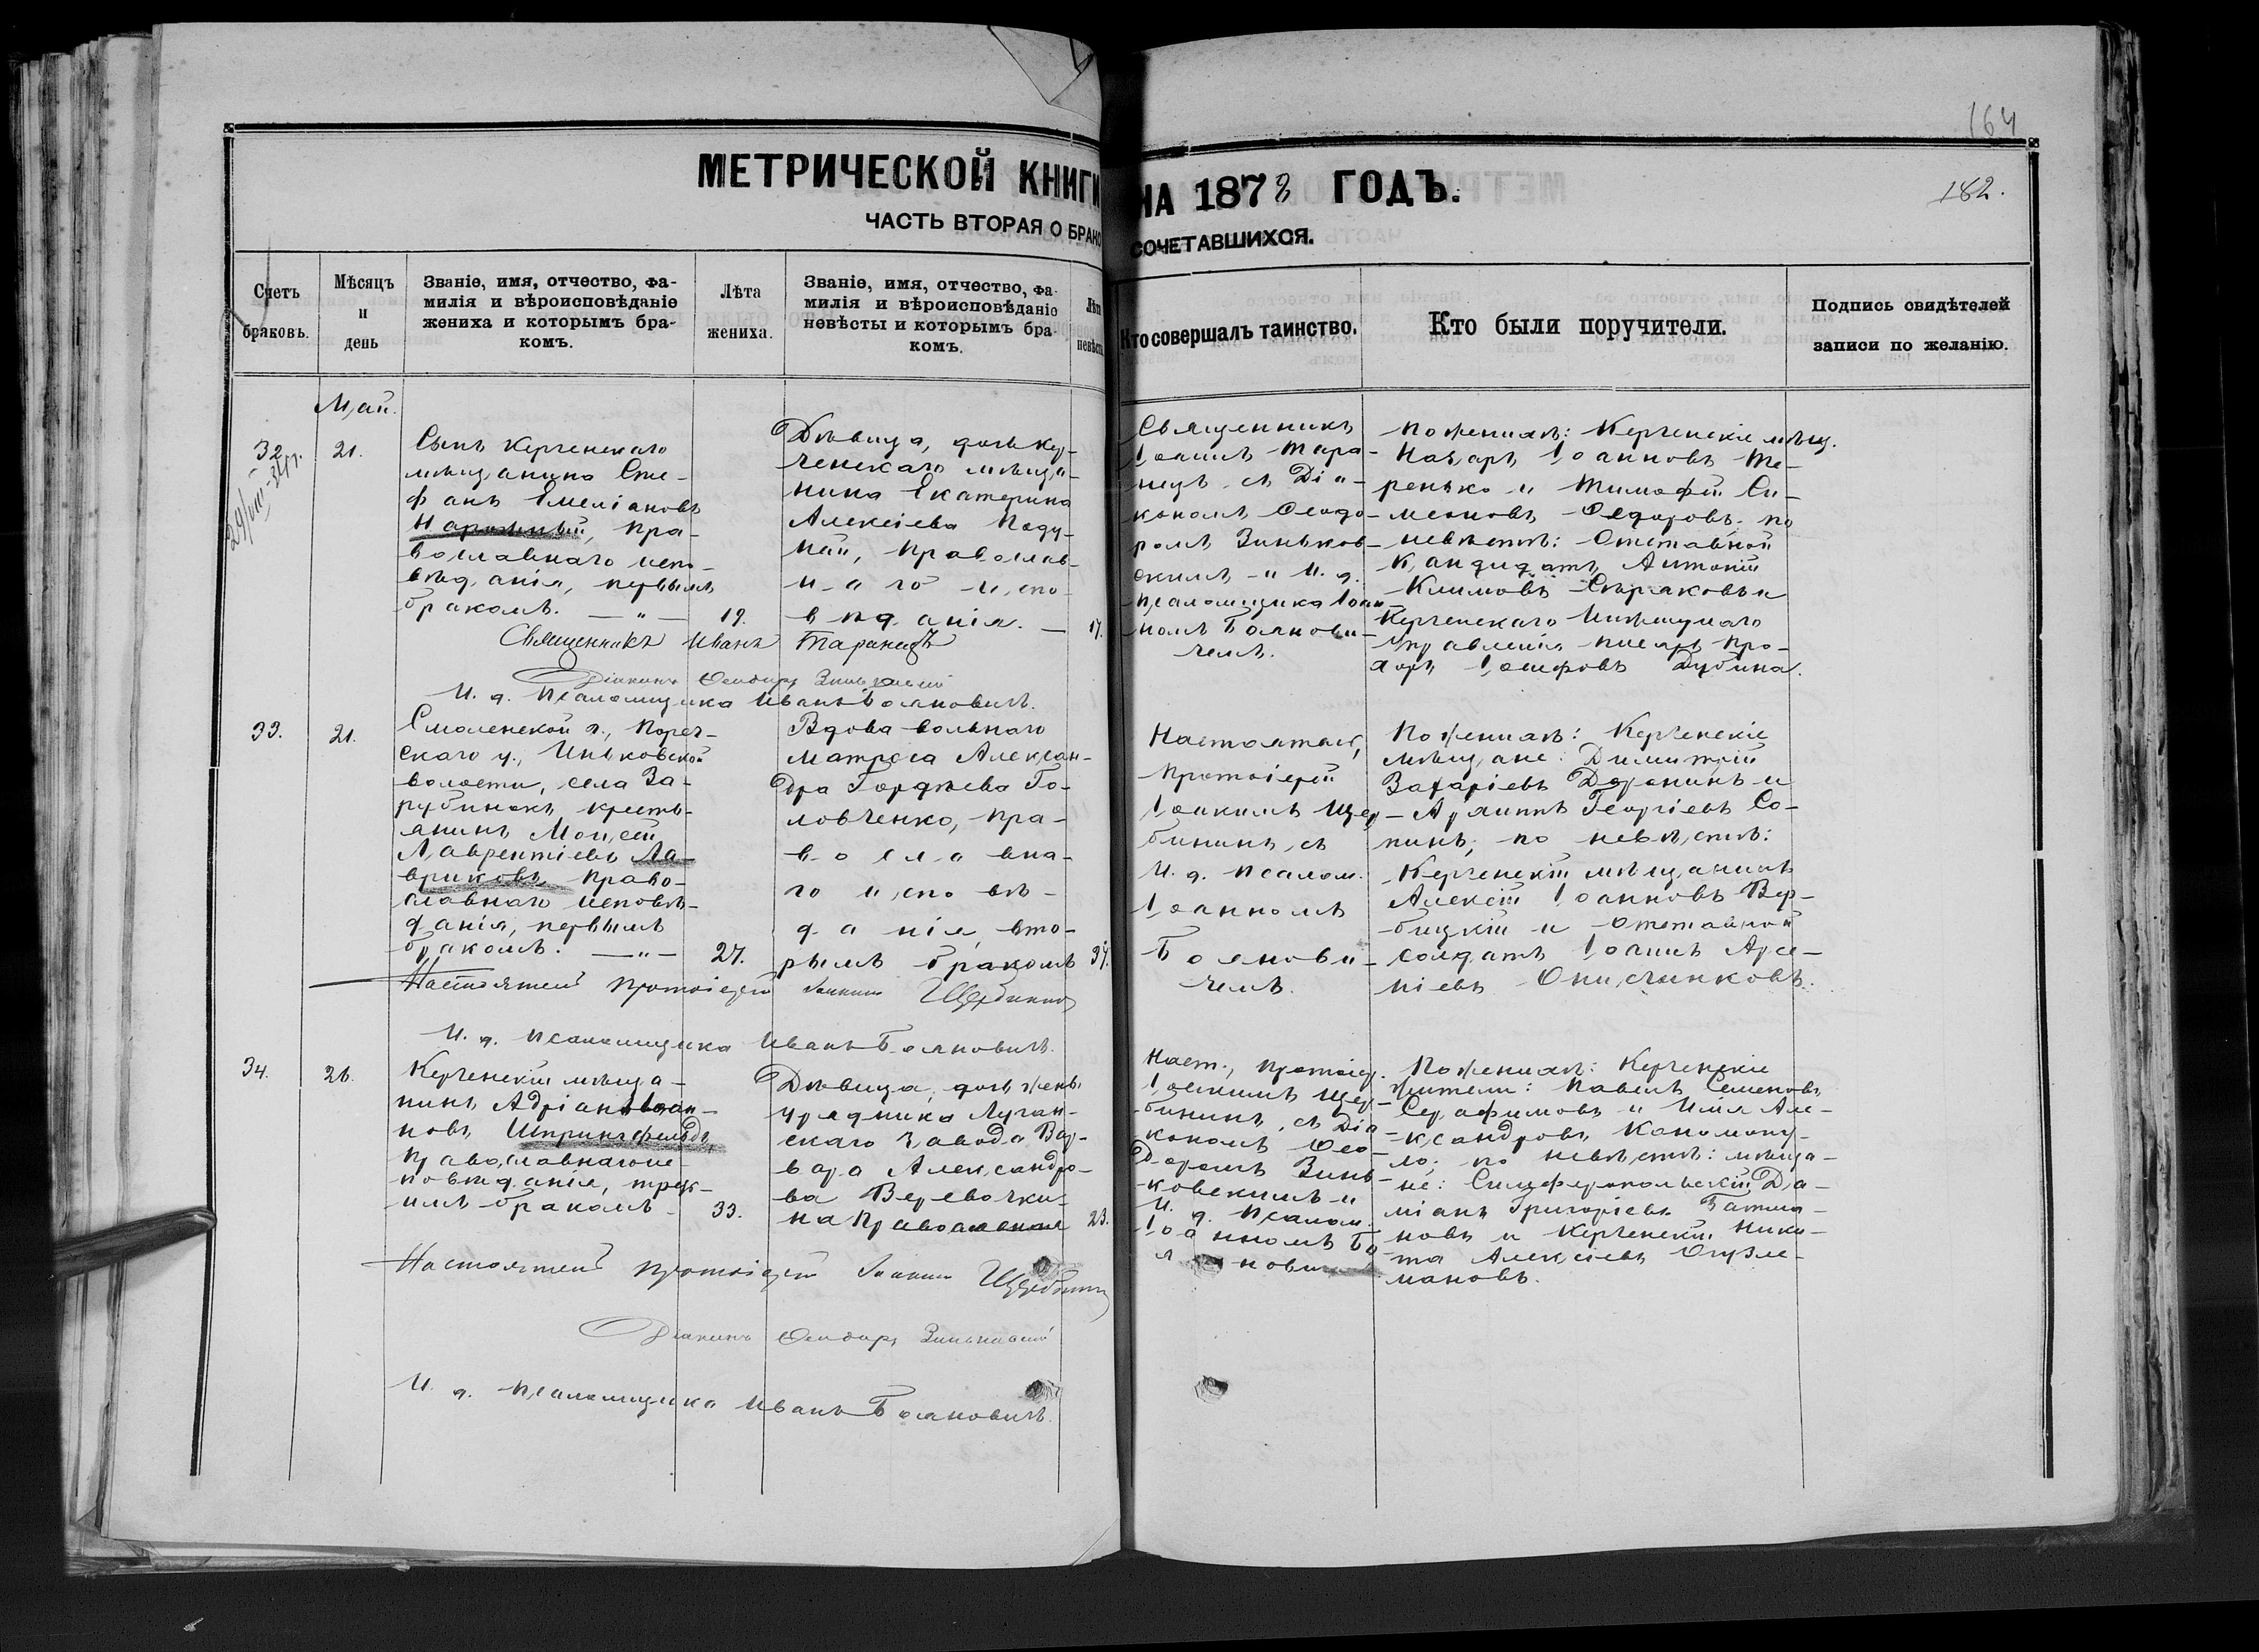 164
МЕТРИЧЕСКОЙ КНИГИ НА 1878 ГОДЪ.
182.
ЧАСТЬ ВТОРАЯ О БРАКОСОЧЕТАВШИХСЯ.
Счетъ браковъ.
Мѣсяцъ и день
Званіе, имя, отчество, фа-
милія и вѣроисповѣданіе
жениха и которымъ бра-
комъ.
Лѣта жениха.
Званіе, имя, отчество, фа-
милія и вѣроисповѣданіе
невѣсты и которымъ бра-
комъ.
Лѣта невѣсты
Кто совершалъ таинство.
Кто были поручители.
Подпись свидѣтелей
записи по желанію.
Май.
32
21.
Сынъ Керченскаго
мѣщанина Сте-
фанъ Емеліановъ
Нарожный, пра-
вославнаго испо-
вѣданія, первымъ
бракомъ. — „ —
19.
Дѣвица, дочь Кер-
ченскаго мѣща-
нина Екатерина
Алексіева Поду-
пай, православ-
наго испо-
вѣданія. —
17.
Священникъ
Іоаннъ Тара-
нецъ, съ Діа-
кономъ Ѳеодо-
ромъ Зиньков-
скимъ и И. д.
псаломщика Іоан-
номъ Боянови-
чемъ.
По женихѣ: Керченскіе мѣщ.
Назаръ Іоанновъ Те-
ренько и Тимофей Си-
меоновъ Ѳедоровъ, по
невѣстѣ: Отставной
Кандидатъ Антоній
Климовъ Сѣраковъ и
Керченскаго
Управленія писарь Про-
хоръ Іосифовъ Дубина.
Священникъ Иванъ Таранецъ
Діаконъ Ѳеодоръ Зиньковскій
И. д. Псаломщика Иванъ Бояновичъ.
33.
21.
Смоленской г., Пореч-
скаго у., Иньковской
волости, села За-
рубинокъ кресть-
янинъ Моисей
Лаврентіевъ Ла-
вриковъ, право-
славнаго исповѣ-
данія, первымъ
бракомъ. — „ —
27.
Вдова вольнаго
матроса Алексан-
дра Гордѣева Го-
ловченко, пра-
вославна-
го исповѣ-
данія, вто-
рымъ бракомъ
34.
Настоятель,
Протоіерей
Іоакимъ Щер-
бининъ, съ
И. д. Псалом.
Іоанномъ
Боянови-
чемъ.
По женихѣ: Керченскіе
мѣщане: Димитрій
Захаріевъ Доронинъ и
Георгіевъ Со-
пинъ; по невѣстѣ:
Керченскій мѣщанинъ
Алексій Іоанновъ Вер-
бицкій и Отставной
солдатъ Іоаннъ Арсе-
ніевъ Онисчинковъ.
Настоятель Протоіерей Іоакимъ Щербининъ
И. д. Псаломщика Иванъ Бояновичъ.
34.
26.
Керченскій мѣща-
нинъ Адріанъ Іоан-
новъ Шпрингфельдъ,
православнаго ис-
повѣданія, треть-
имъ бракомъ
33.
Дѣвица, дочь
урядника Луган-
скаго завода Вар-
вара Александро-
ва Веревочки-
на православная
23.
Наст., Протоіер.
Іоакимъ Щер-
бининъ, съ Діа-
кономъ Ѳео-
доромъ Зинь-
ковскимъ и
И. д. Псалом.
Іоанномъ Бо-
янови
По женихѣ: Керченскіе
жители: Павелъ Семеновъ
Серафимовъ и Илія Але-
ксандровъ Канопоту-
ло; по невѣстѣ: мѣща-
не: Симферопольскій Да-
міанъ Григоріевъ Батма-
новъ и Керченскій Ники-
та Алексіевъ Огузле-
мановъ.
Настоятель Протоіерей Іоакимъ Щербининъ
Діаконъ Ѳеодоръ Зиньковскій
И. д. Псаломщика Иванъ Бояновичъ.